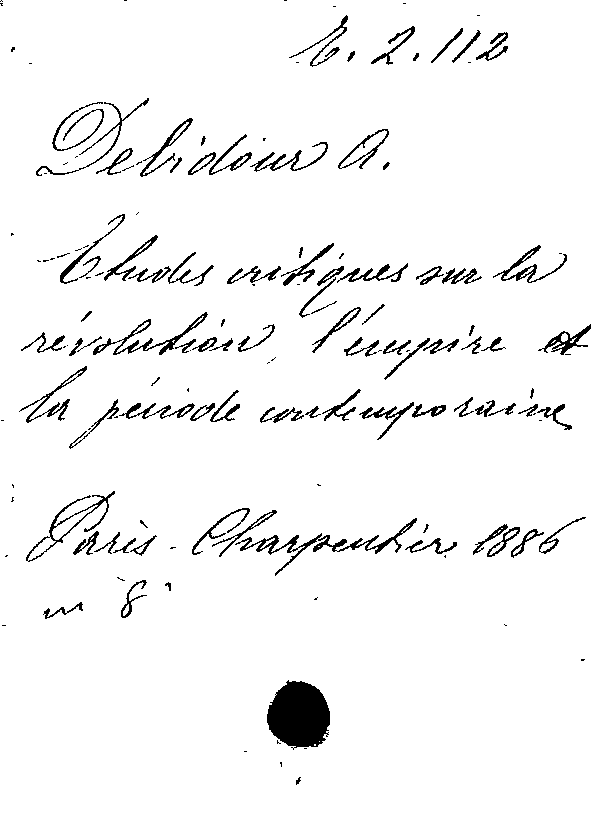 E. 2. 112
Debidour A.
Etudes critiques sur la
révolution, l'empire et
la période contemporaine
Paris - Charpentier 1886
in 8°